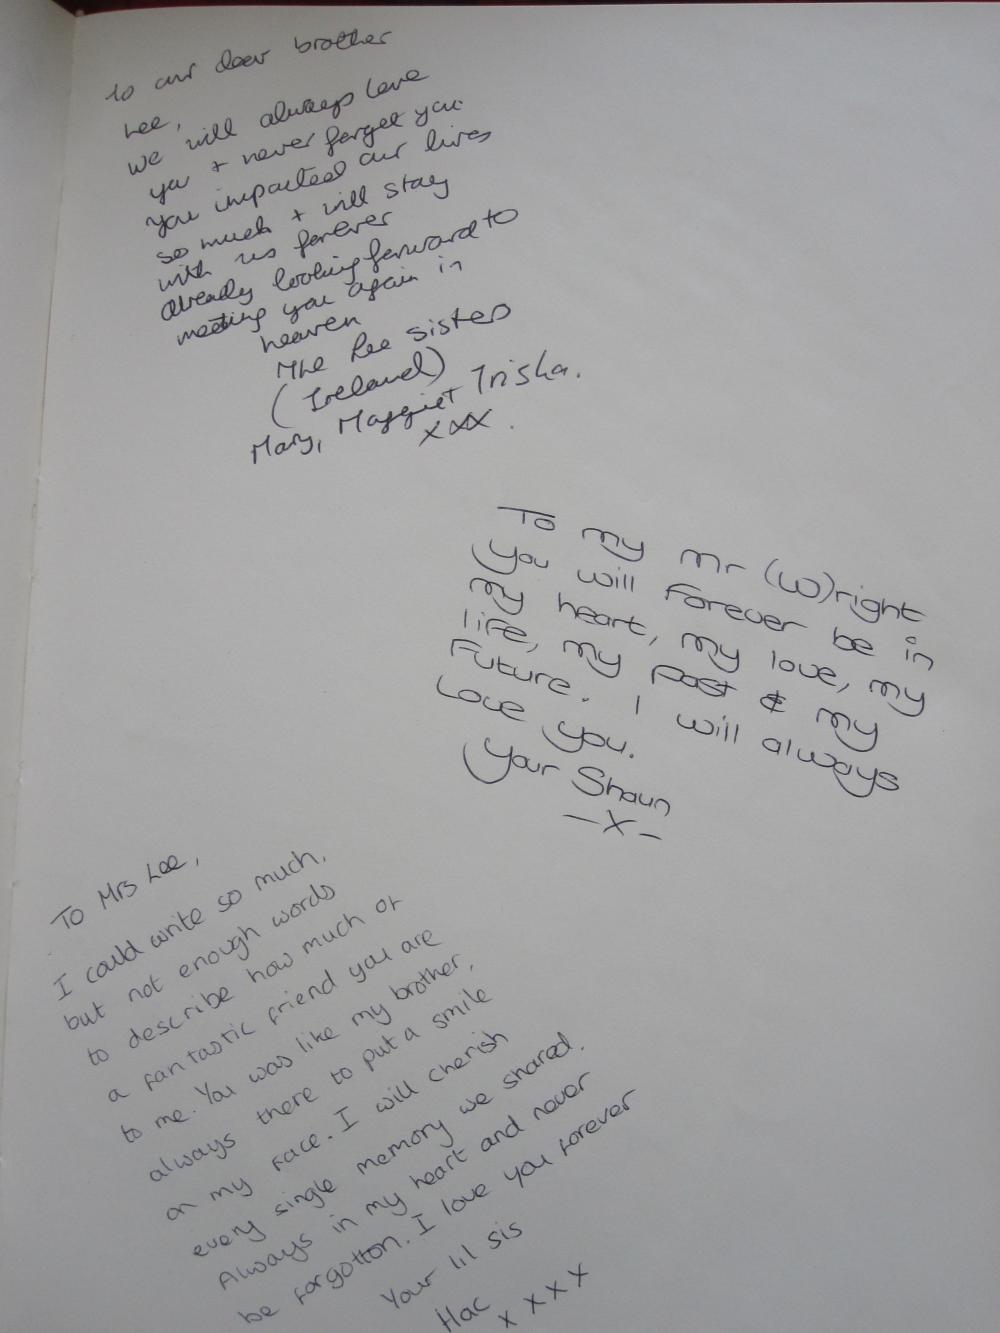 To our dear brother
Lee,
We will always love
you + never forget you.
You impacted our lives
so much + will stay
with us forever
already looking forward to
meeting you again in
heaven
The Lee sisters
(Ireland)
Mary, Margaret Trisha.
xxx.
To my mr (W)right
You will forever be in
my heart, my love, my
life, my past & my
Future. I will always
Love you.
Your Shaun
-X-
To Mrs Lee,
I could write so much,
but not enough words
to describe how much of
a fantastic friend you are
to me. You was like my brother,
always there to put a smile
on my face. I will cherish
every single memory we shared.
Always in my heart and never
be forgotton. I love you forever
Your lil sis
Hac
x x x x